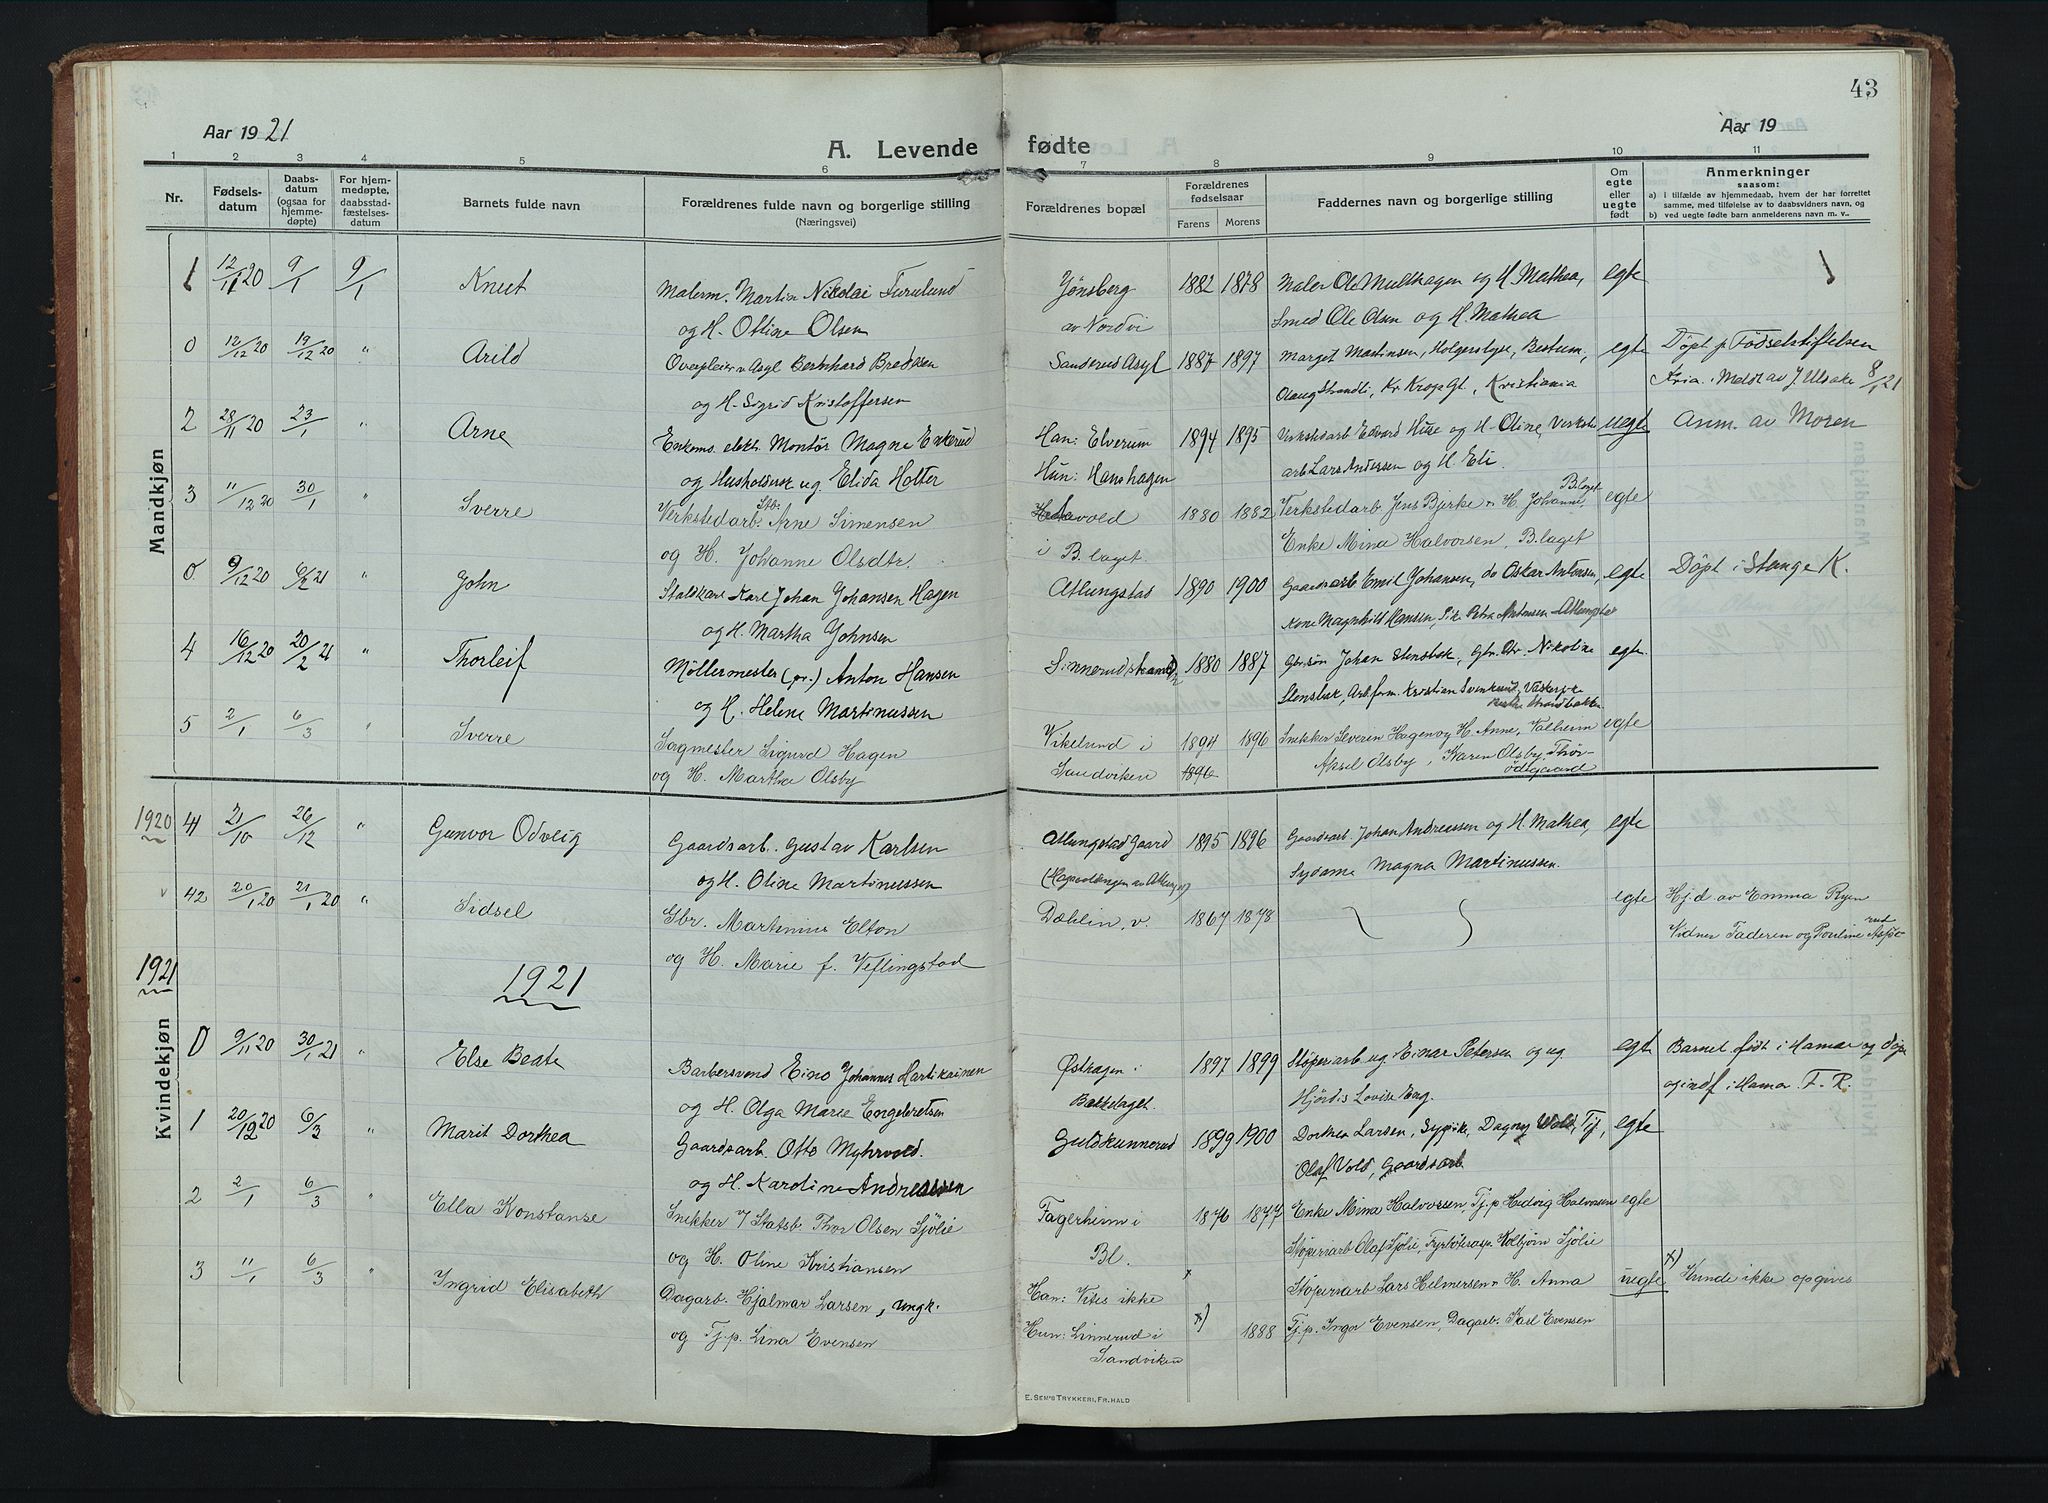 43
Aar 1921
Aar 19
A. Levende fødte
1 2 3 4 5 6 7 8 9 10 11
Nr.
Fødsels-
datum
Daabs-
datum
(ogsaa for
hjemme-
døpte)
For hjem-
medøpte,
daabsstad-
fæstelses-
datum
Barnets fulde navn
Forældrenes fulde navn og borgerlige stilling
(Næringsvei)
Forældrenes bopæl
Forældrenes
fødselsaar
Farens Morens
Faddernes navn og borgerlige stilling
Om
egte
eller
uegte
født
Anmerkninger
saasom:
a) i tilfælde av hjemmedaab, hvem der har forrettet
samme, med tilføielse av to daabsvidners navn, og
b) ved uegte fødte barn anmelderens navn m. v.
Mandkjøn
1 12/11 20 9/1 9/1 Knut Malerm. Martin Nikolai Furulund Jønsberg 1882 1878 Maler Ole Mulshagen og H. Mathea, egte
og H. Otline Olsen av Nordvi Smed Ole Olsen og H. Mathea
0 12/12 20 19/12 20 " Arild Overpleier v. Asyl Bernhard Bredesen Sanderud Asyl 1887 1897 Marget Martinsen, Holgerslyse, Bestum, egte Döpt p. Födselstiftelsen
og H. Sigrid Kristoffersen Olaug Strandli, Kr. Krogs Gt., Kristiania Kria. Meldt av J. Ulsake 8/1 21
2 28/11 20 23/1 " Arne Enkems. elektr. Montör Magne Enkerud Han: Elverum 1894 1895 Verkstedarb. Edvard Huse og H. Oline, Verksts. uegte Anm. av Moren
og Husholdersk. ug. Elida Holter Hun: Hanshagen arb. Lars Andersen og H. Eli.
3 11/12 20 30/1 " Sverre Verkstedarb. Stb. Arne Simensen vold 1880 1882 Verkstedarb. Jens Bjerke & H. Johanne, B.laget egte
og H. Johanne Olsdtr. i B.laget Enke Mina Halvorsen, B.laget
0. 9/12 20 6/2 21 " John Staldkarl Karl Johan Johansen Hagen Atlungstad 1890 1900 Gaardsarb. Emil Johansen, do Oskar Antonsen, egte Döpt i Stange K.
og H. Martha Johnsen Kone Magnhild Hansen, Pike Petra Antonsen Atlungstad
4 16/12 20 20/2 21 " Thorleif Möllermester (pr.) Anton Hansen Sinnerudstranden 1880 1887 Gbr.sön Johan Stensbak, Gbr. Dtr. Nikoline egte.
og H. Helene Martinussen Stensbak, Arb.form. Kristian Svenkerud, Vaskerpike Strandbakken
5 2/1 6/3 " Sverre Sagmester Sigurd Hagen Vikelund i 1894 1896 Snekker Severin Hagen og H. Anne, Valheim egte
og H. Martha Olsby Sandviken 1896 Aksel Olsby, Karen Olsby, Thor-
ödegaard
Kvindekjøn
1920 41 21/10 26/12 " Gunvor Odvlig Gaardsarb. Gustav Karlsen Atlungstad Gaard 1895 1896 Gaardsarb. Johan Andreassen og H. Mathea, egte
og H. Oline Martinussen Sydame Magna Martinussen.
v 42 20/1 20 21/1 20 " Sidsel Gbr. Martinius Elton Dæhlin, v. 1867 1878 egte Hj.d av Emma Ryen
og H. Marie f. Veflingstad Vidner Faderen og Pouline Aspe-
rud
1921
1921
0 9/11 20 30/1 21 " Else Beate Barbersvend Eino Johannes Hartikainen Østhagen i 1897 1899 Støperiarb ug Einar Petersen og ug. egte Barnet født i Hamar og døpt
og H. Olga Marie Engebretsen Bækkelaget. Hjördis Lovise Eng. og indf i Hamar F. R.
1 20/12 20 6/3 " Marit Dorthea Gaardsarb. Otto Myhrvold. Guldkunnerud 1899 1900 Dorthea Larsen, Sypike, Dagny Vold, Tj, egte
og H. Karoline Andreassen Olaf Vold, Gaardsarb
2 2/1 6/3 " Ella Konstanse Snikker 7 Statsb. Thor Olsen Sjölie Fagerheim i 1876 1877 Enke Mina Halvorsen, Tj.p Hedvig Halvorsen egte
og H. Oline Kristiansen Bl. Støperiarb Olaf Sjölie, Fyrböterasp. Kolbjørn Sjölie
3 11/1 6/3 " Ingrid Elisabeth Dagarb. Hjalmar Larsen, ungk. Han: Vites ikke x Støperiarb Lars Helmersen & H. Anna uegte x) Kunde ikke opgives
og Tj.p. Lina Evensen Hun: Linnerud i x) 1888 Tj.p. Inga Evensen, Dagarb. Karl Evensen
Sandviken
E. SEM'S TRYKKERI, FR. HALD